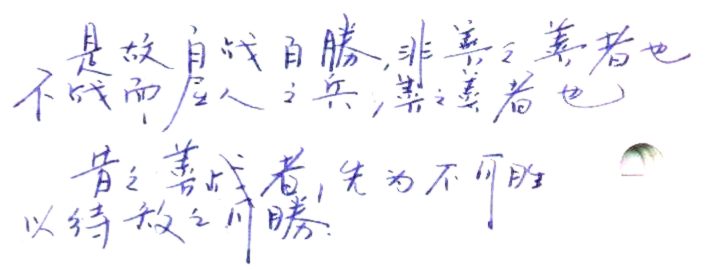 是故百战百勝,非善之善者也
不战而屈人之兵,善之善者也
昔之善战者,先为不可胜
以待敌之可勝.